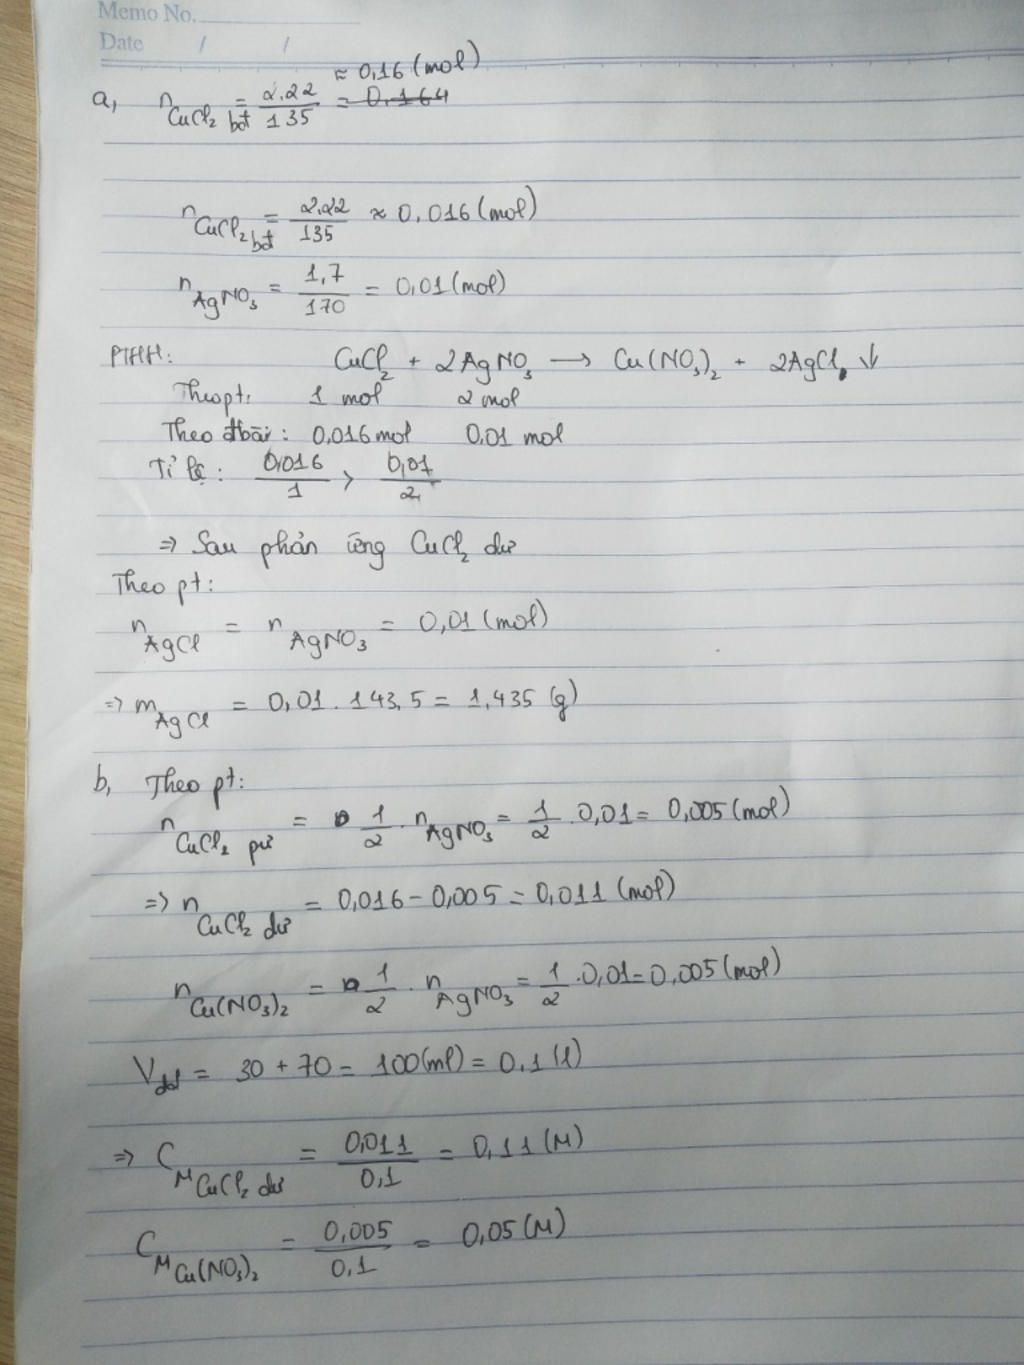 Memo No.
Date / /
≈ 0,16 (mol)
a, nCuCl₂ bđ = 2,22/135 = 0,164
nCuCl₂ bđ = 2,22/135 ≈ 0,016 (mol)
nAgNO₃ = 1,7/170 = 0,01 (mol)
PTHH: CuCl₂ + 2AgNO₃ → Cu(NO₃)₂ + 2AgCl ↓
Theo pt: 1 mol 2 mol
Theo đbài: 0,016 mol 0,01 mol
Tỉ lệ: 0,016/1 > 0,01/2
⇒ Sau phản ứng CuCl₂ dư
Theo pt:
nAgCl = nAgNO₃ = 0,01 (mol)
⇒ mAgCl = 0,01 . 143,5 = 1,435 (g)
b, Theo pt:
nCuCl₂ pư = 1/2 . nAgNO₃ = 1/2 . 0,01 = 0,005 (mol)
⇒ nCuCl₂ dư = 0,016 - 0,005 = 0,011 (mol)
nCu(NO₃)₂ = 1/2 . nAgNO₃ = 1/2 . 0,01 = 0,005 (mol)
Vdd = 30 + 70 = 100 (ml) = 0,1 (l)
⇒ CM CuCl₂ dư = 0,011/0,1 = 0,11 (M)
CM Cu(NO₃)₂ = 0,005/0,1 = 0,05 (M)